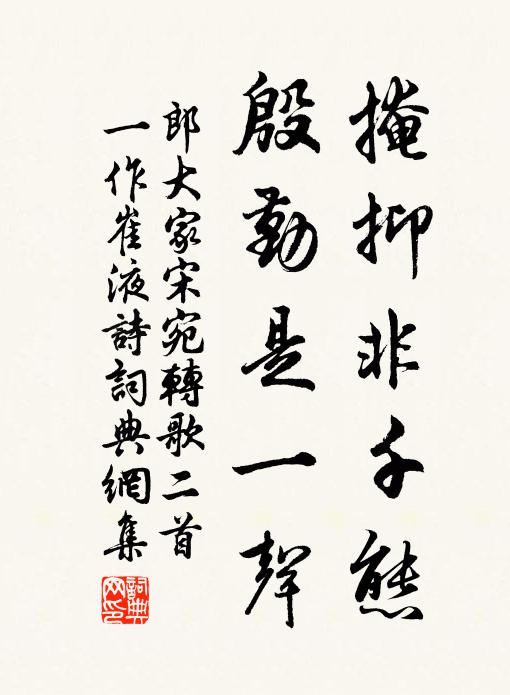 掩抑非千態
殷勤是一聲
郎大家宋宛轉歌二首
一作崔液詩詞典網集
詞典網印